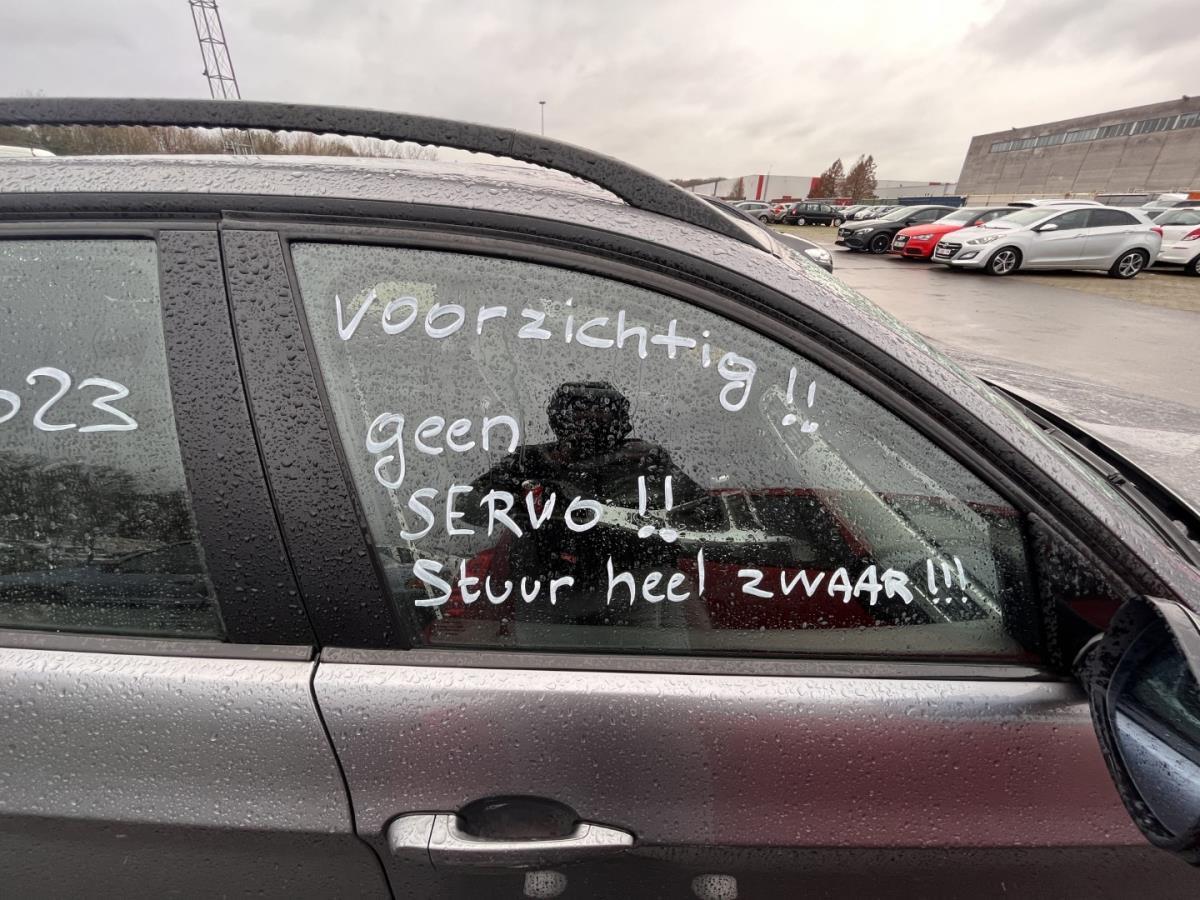 Voorzichtig !!
geen
SERVO !!
Stuur heel ZWAAR !!!
023